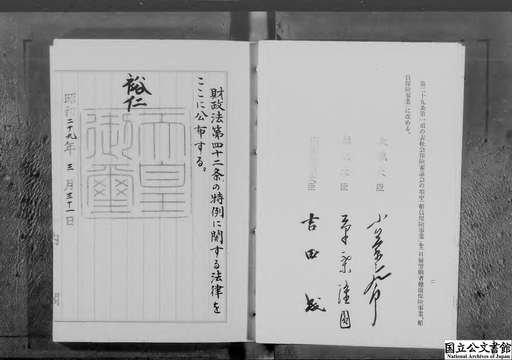 第二十九条第一項の表社会保険審議会の項中「船員保険事業」を「日雇労働者健康保険事業、船
員保険事業」に改める。
二
大蔵大臣
小笠原三九郎
厚生大臣
草葉隆圓
内閣総理大臣
吉田茂
財政法第四十二条の特例に関する法律を
ここに公布する。
裕仁
天皇
御璽
昭和二十九年三月三十一日
国立公文書館
National Archives of Japan